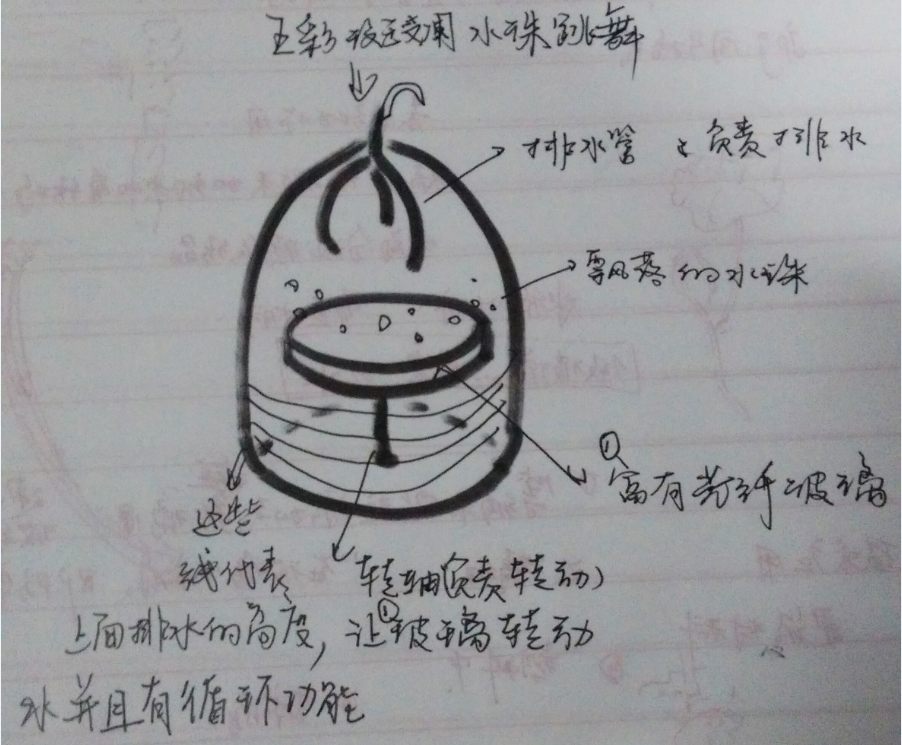 五彩玻璃水珠跳舞
排水管 负责排水
飘落的水珠
①
富有 玻璃
这些
线代表
上面排水的高度,
水并且有循环功能
转轴负责转动
让①玻璃转动